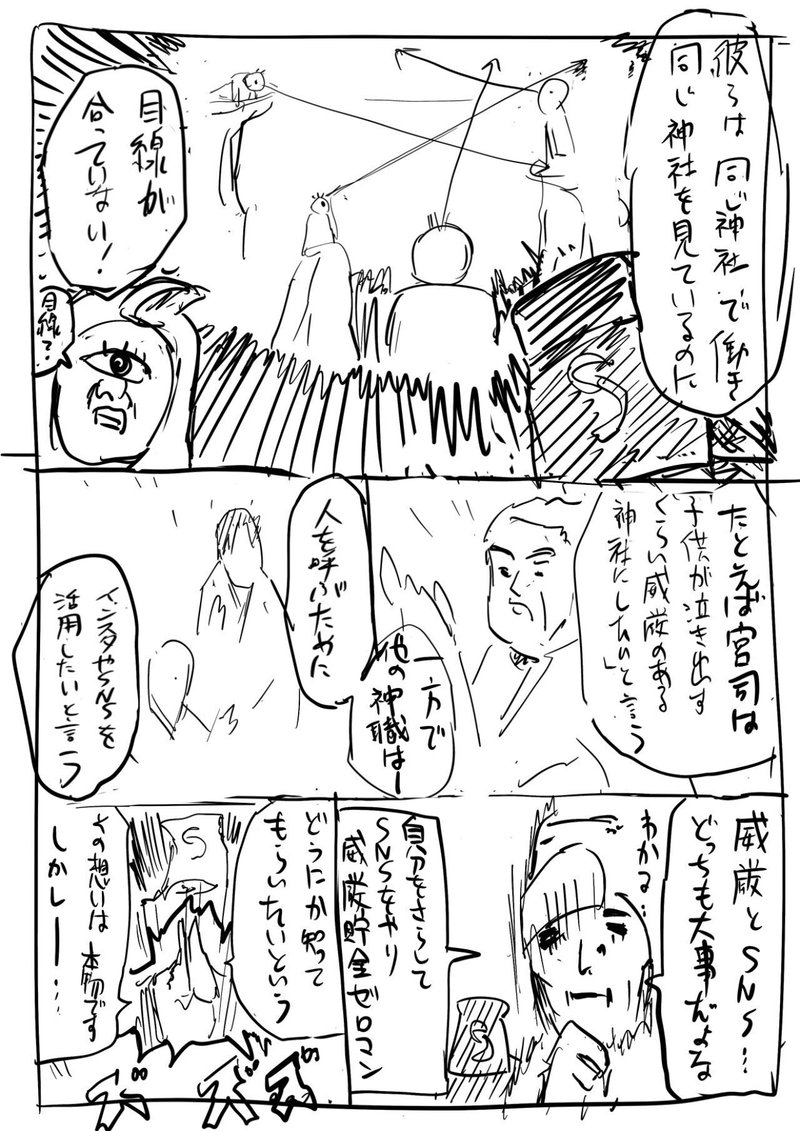 彼らは同じ神社で働き
同じ神社を見ているのに
目線が
合っていない!
目線?
S
たとえば宮司は
「子供が泣き出す
くらい威厳のある
神社にしたい」と言う
一方で
他の神職はー
人を呼ぶために
インスタやSNSを
活用したいと言う
威厳とSNS…
どっちも大事だよな
わかる…
S
自分をさらして
SNSをやり
威厳貯金ゼロマン
どうにか知って
もらいたいという
S
その想いは本物です
しかしー…
ズズズ